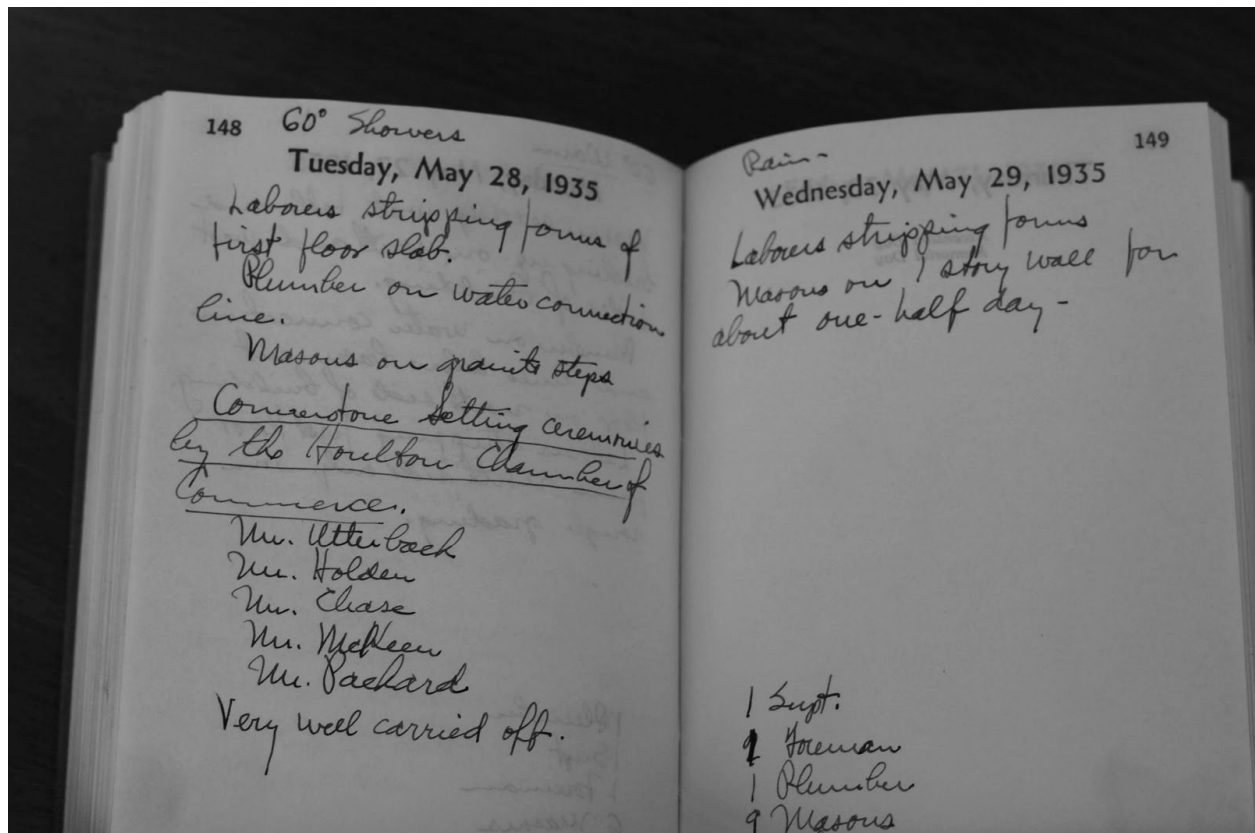 148 60° Showers
Tuesday, May 28, 1935
Laborers stripping forms of
first floor slab.
Plumber on water connection
line.
Masons on granite steps
Cornerstone setting ceremonies
by the Houlton Chamber of
Commerce.
Mr. Utterback
Mr. Holden
Mr. Chase
Mr. McKeen
Mr. Packard
Very well carried off.
Rain- 149
Wednesday, May 29, 1935
Laborers stripping forms
Masons on 1 story wall for
about one-half day-
1 Supt.
Foreman
1 Plumber
9 Masons